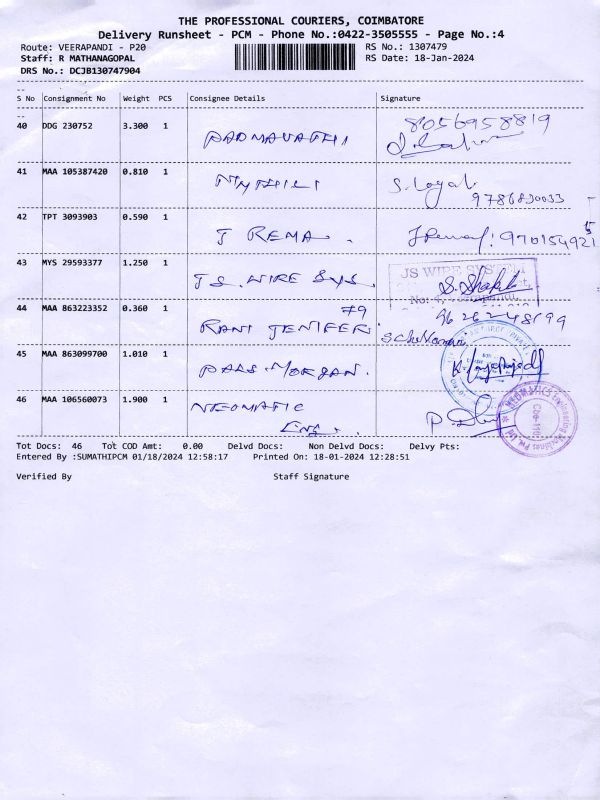 THE PROFESSIONAL COURIERS, COIMBATORE
Delivery Runsheet - PCM - Phone No.:0422-3505555 - Page No.:4
Route: VEERAPANDI - P20 RS No.: 1307479
Staff: R MATHANAGOPAL RS Date: 18-Jan-2024
DRS No.: DCJB130747904
S No Consignment No Weight PCS Consignee Details Signature
40 DDG 230752 3.300 1 PADMAVATHI 8056958819
41 MAA 105387420 0.810 1 MYTHILI S. Logal
42 TPT 3093903 0.590 1 J REMA.
43 MYS 29593377 1.250 1 JS. WIRE SYS. JS WIRE SYSTEM
44 MAA 863223352 0.360 1 RANI JENIFER 79
45 MAA 863099700 1.010 1 PALS. MORGAN.
46 MAA 106560073 1.900 1 NEOMATIC
Eng.
Tot Docs: 46 Tot COD Amt: 0.00 Delvd Docs: Non Delvd Docs: Delvy Pts:
Entered By :SUMATHIPCM 01/18/2024 12:58:17 Printed On: 18-01-2024 12:28:51
Verified By Staff Signature